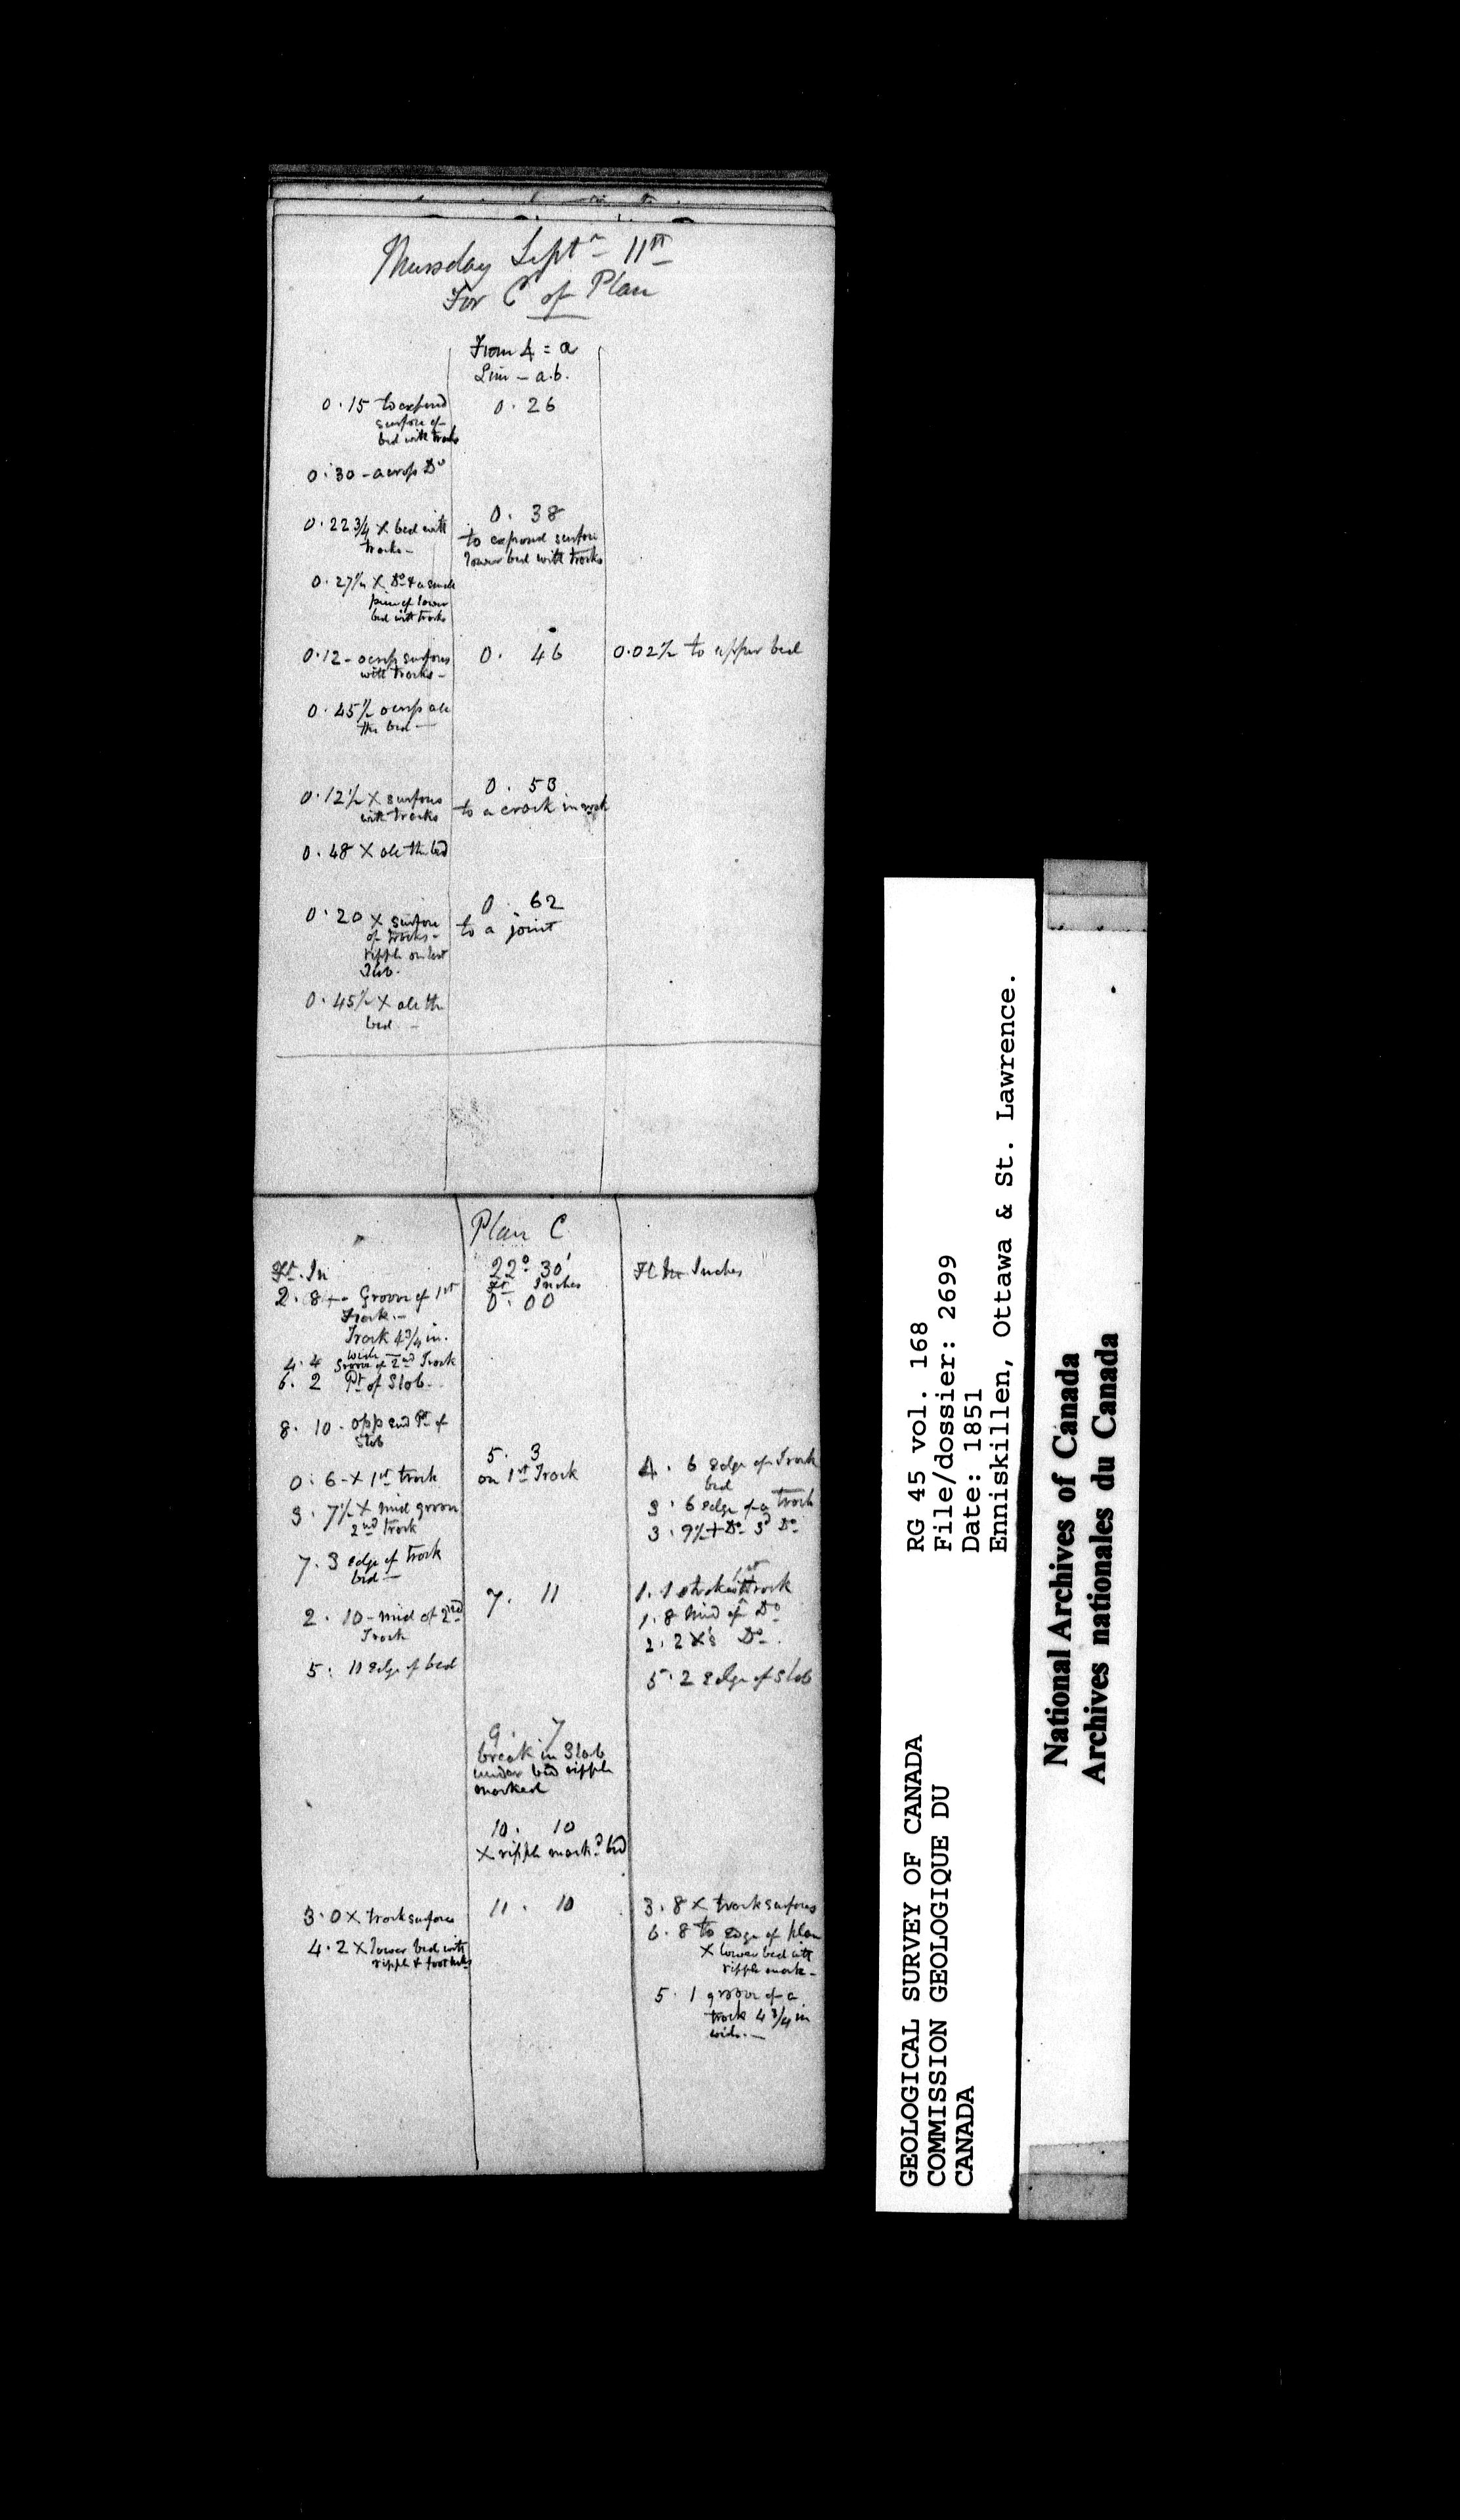 Thursday Septr 11th
For C of Plan
From 4 = a
Line - a.b.
0.15 to exposed
surface of
bed with tracks
0.26
0.30 - across Do
0.22 3/4 X bed with
tracks -
0. 38
to exposed surface
lower bed with tracks
0.27 1/2 X Do & a small
piece of lower
bed with tracks
0.12 - across surface
with tracks -
0. 46
0.02 1/2 to upper bed
0.45 1/2 across all
the bed -
0.12 1/2 X surface
with tracks
0. 53
to a crack in rock
0.48 X all the bed
0.20 X surface
of tracks -
ripple on last
Slab.
0. 62
to a joint
0.45 1/2 X all the
bed -
Plan C
Ft. In
22° 30'
Ft Inches
0. 00
Ft In Inches
2. 8 + - Groove of 1st
Track -
Track 4 3/4 in.
wide -
4. 4 Groove of 2nd Track
6. 2 Pt of Slab -
8. 10 - opp end Pt of
Slab
0. 6 - X 1st track
5. 3
on 1st Track
4. 6 edge of Track
bed
3. 7 1/2 X mid groove
2nd track
3. 6 edge of a track
3. 9 1/2 + Do 3d Do
7. 3 edge of track
bed -
7. 11
1st
1. 1 track
1. 8 Mid of Do
2. 10 - mid of 2nd
Track
2. 2 X's Do -
5. 11 edge of bed
5. 2 edge of slab
9. 7
break in Slab
under bed ripple
marked
10. 10
X ripple mark.d bed
3. 0 X track surface
11. 10
3. 8 X track surface
4. 2 X lower bed with
ripple &
6. 8 to edge of plan
X lower bed with
ripple mark -
5. 1 groove of a
track 4 3/4 in
wide. -
GEOLOGICAL SURVEY OF CANADA
COMMISSION GEOLOGIQUE DU
CANADA
RG 45 vol. 168
File/dossier: 2699
Date: 1851
Enniskillen, Ottawa & St. Lawrence.
National Archives of Canada
Archives nationales du Canada